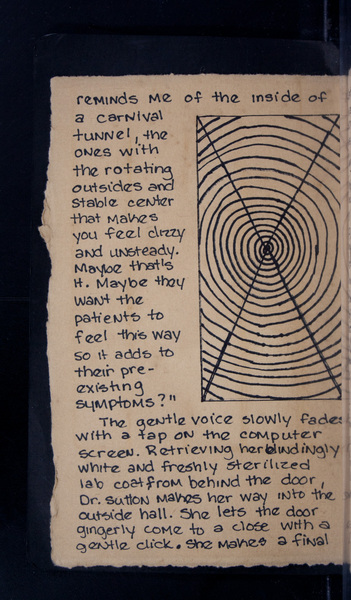 reminds me of the inside of
a carnival
tunnel, the
ones with
the rotating
outsides and
stable center
that makes
you feel dizzy
and unsteady.
Maybe that's
it. Maybe they
want the
patients to
feel this way
so it adds to
their pre-
existing
symptoms?"
The gentle voice slowly fades
with a tap on the computer
screen. Retrieving her blindingly
white and freshly sterilized
lab coat from behind the door,
Dr. Sutton makes her way into the
outside hall. She lets the door
gingerly come to a close with a
gentle click. She makes a final